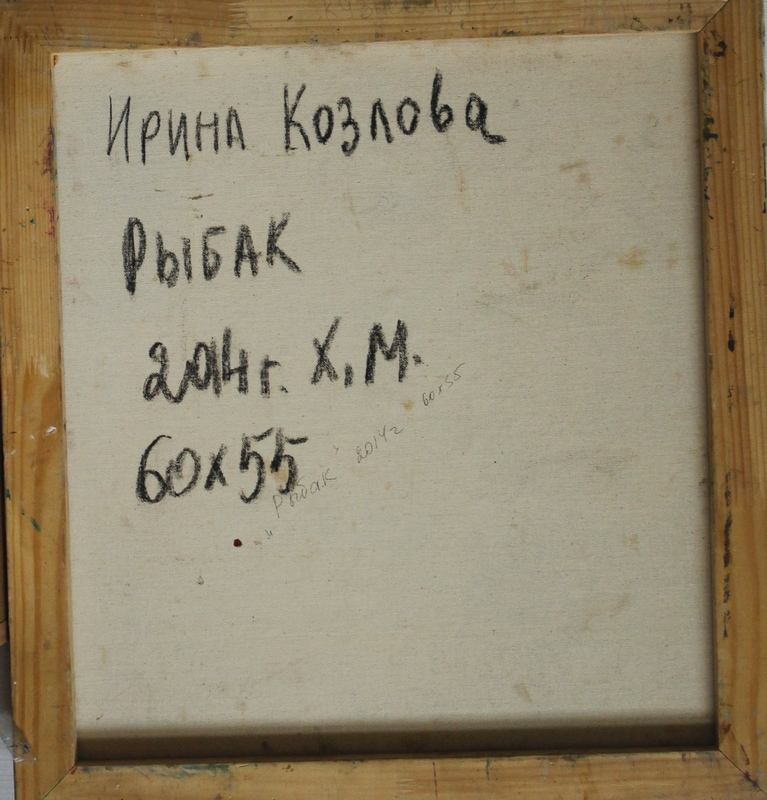 Ирина Козлова
Рыбак
2014г. Х.М.
60х55
"Рыбак" 2014г 60х55